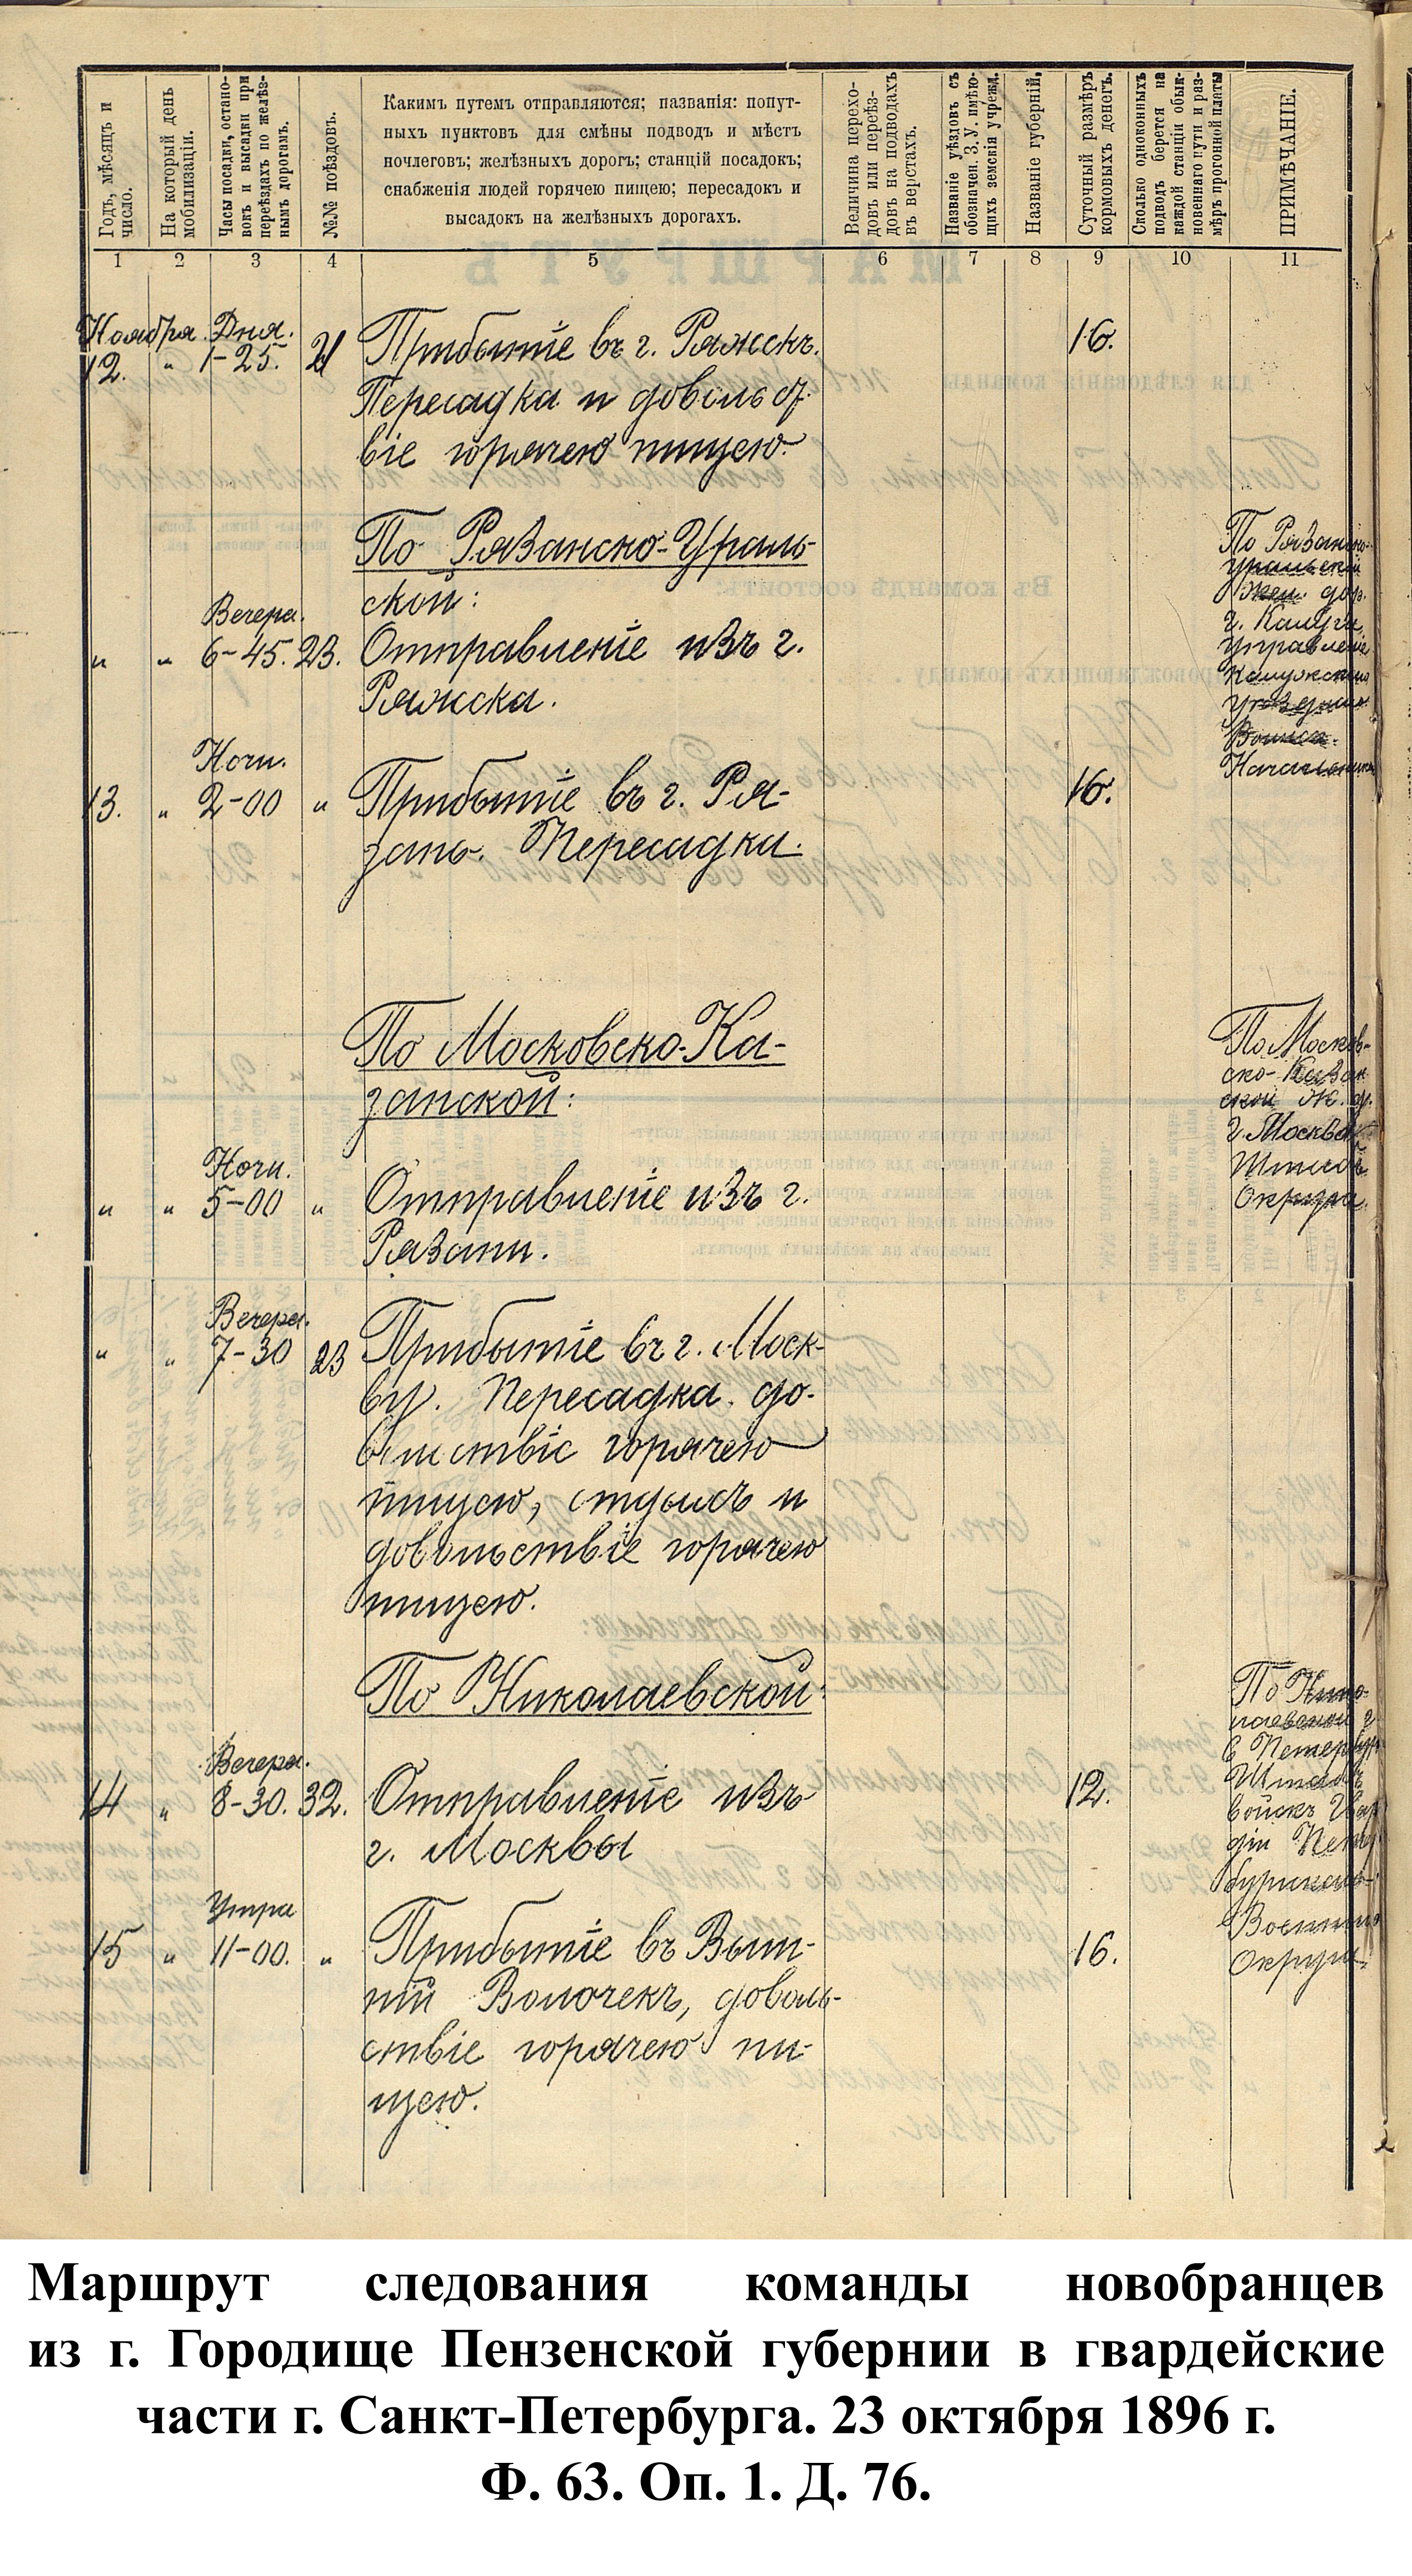 Годъ, мѣсяцъ и
число.
На который день
мобилизаціи.
Часы посадки, остано-
вокъ и высадки при
переѣздахъ по желѣз-
нымъ дорогамъ.
№№ поѣздовъ.
Какимъ путемъ отправляются; названія: попут-
ныхъ пунктовъ для смѣны подводъ и мѣстъ
ночлеговъ; желѣзныхъ дорогъ; станцій посадокъ;
снабженія людей горячею пищею; пересадокъ и
высадокъ на желѣзныхъ дорогахъ.
Величина перехо-
довъ или переѣз-
довъ на подводахъ
въ верстахъ.
Названіе уѣздовъ съ
обозначен. З. У. имѣю-
щихъ земскія учрежд.
Названіе губерній.
Суточный размѣръ
кормовыхъ денегъ.
Сколько одноконныхъ
подводъ берется на
каждой станціи обык-
новеннаго пути и раз-
мѣръ прогонной платы
ПРИМѢЧАНІЕ.
1 2 3 4 5 6 7 8 9 10 11
Ноября Дня.
12. " 1-25. 21 Прибытіе въ г. Ряжскъ. 16.
Пересадка и довольст-
віе горячею пищею.
По Рязанско-Ураль-
ской:
Вечера.
" " 6-45. 23. Отправленіе изъ г.
Ряжска.
По Рязанско-
Уральской
Жел. дор.
г. Калуга
Управленіе
Калужскаго
Уѣзднаго
Воинск.
Начальника
Ночи.
13. " 2-00 " Прибытіе въ г. Ря- 16.
зань. Пересадка.
По Московско-Ка-
занской:
По Москов-
ско-Казан
ской Ж. д.
г. Москва
Штабъ
Округа.
Ночи.
" " 5-00 " Отправленіе изъ г.
Рязани.
Вечера.
" " 7-30 23 Прибытіе въ г. Моск-
ву. Пересадка. до-
горячею
пищею, отдыхъ и
довольствіе горячею
пищею.
По Николаевской
По Нико-
лаевской
Петербург
Штабъ
войскъ Гвар
діи Петер
бургскаго
Военнаго
Округа.
Вечера.
14 " 8-30. 32. Отправленіе изъ 12.
г. Москвы
Утра
15 " 11-00. " Прибытіе въ Выш- 16.
ній Волочекъ, доволь-
ствіе горячею пи-
щею.
Маршрут следования команды новобранцев
из г. Городище Пензенской губернии в гвардейские
части г. Санкт-Петербурга. 23 октября 1896 г.
Ф. 63. Оп. 1. Д. 76.